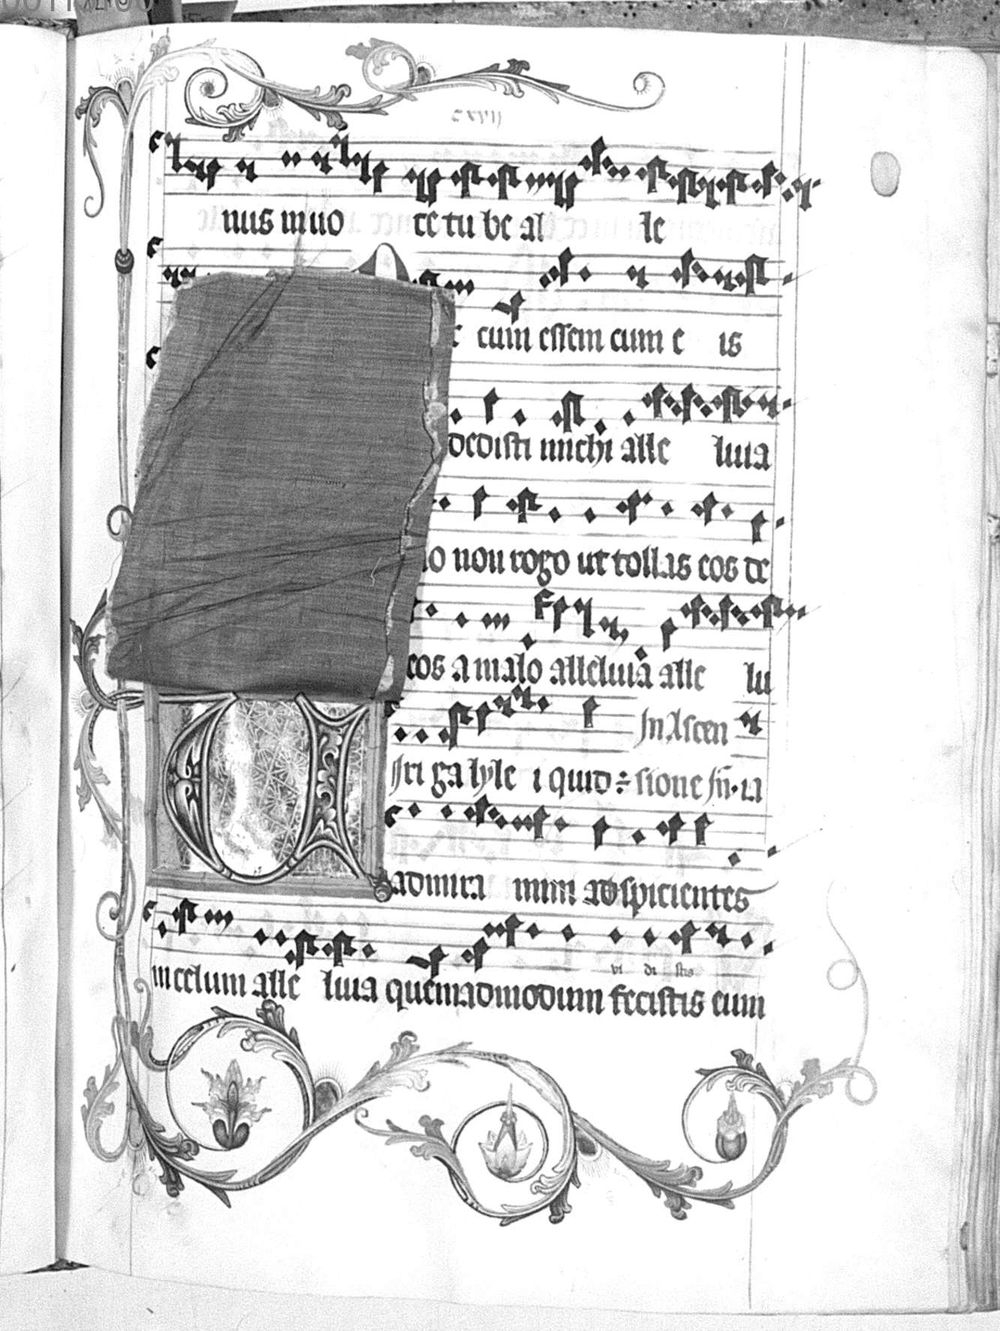 cxvii
nus in uo ce tu be al le
cum essem cum e is
dedisti michi alle luia
non rogo ut tollas eos de
eos a malo alleluia alle lu
In Ascen
iri ga lyle i quid sione
admira mini aspicientes
vi di stis
in celum alle luia quemadmodum fecistis eum